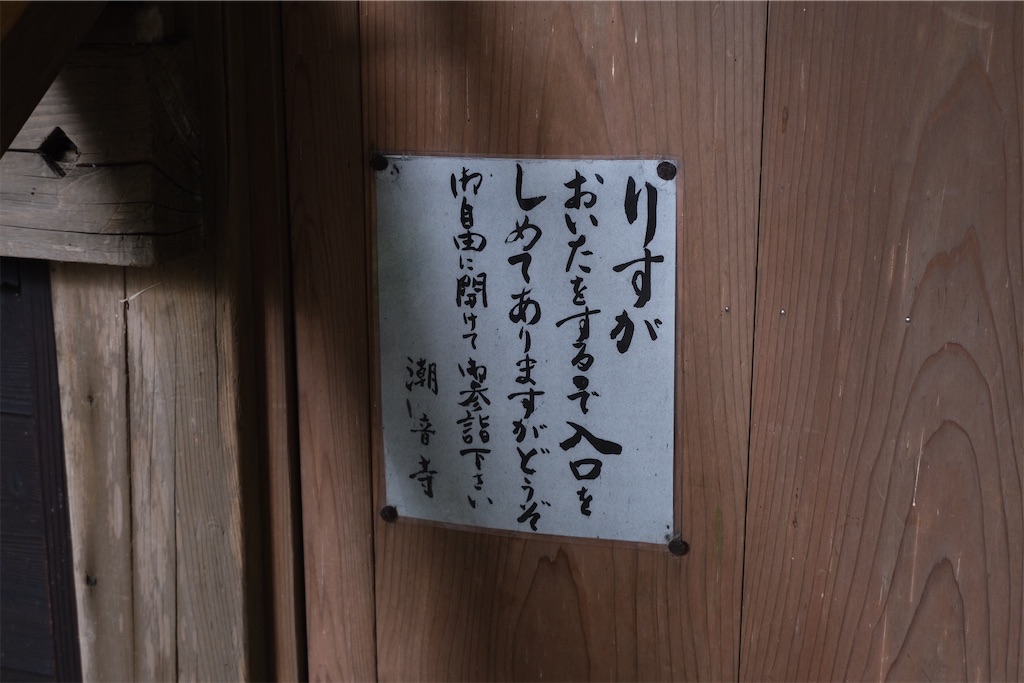 りすが
おいたをするで入口を
しめてありますがどうぞ
御自由に開けて御参詣下さい
潮音寺